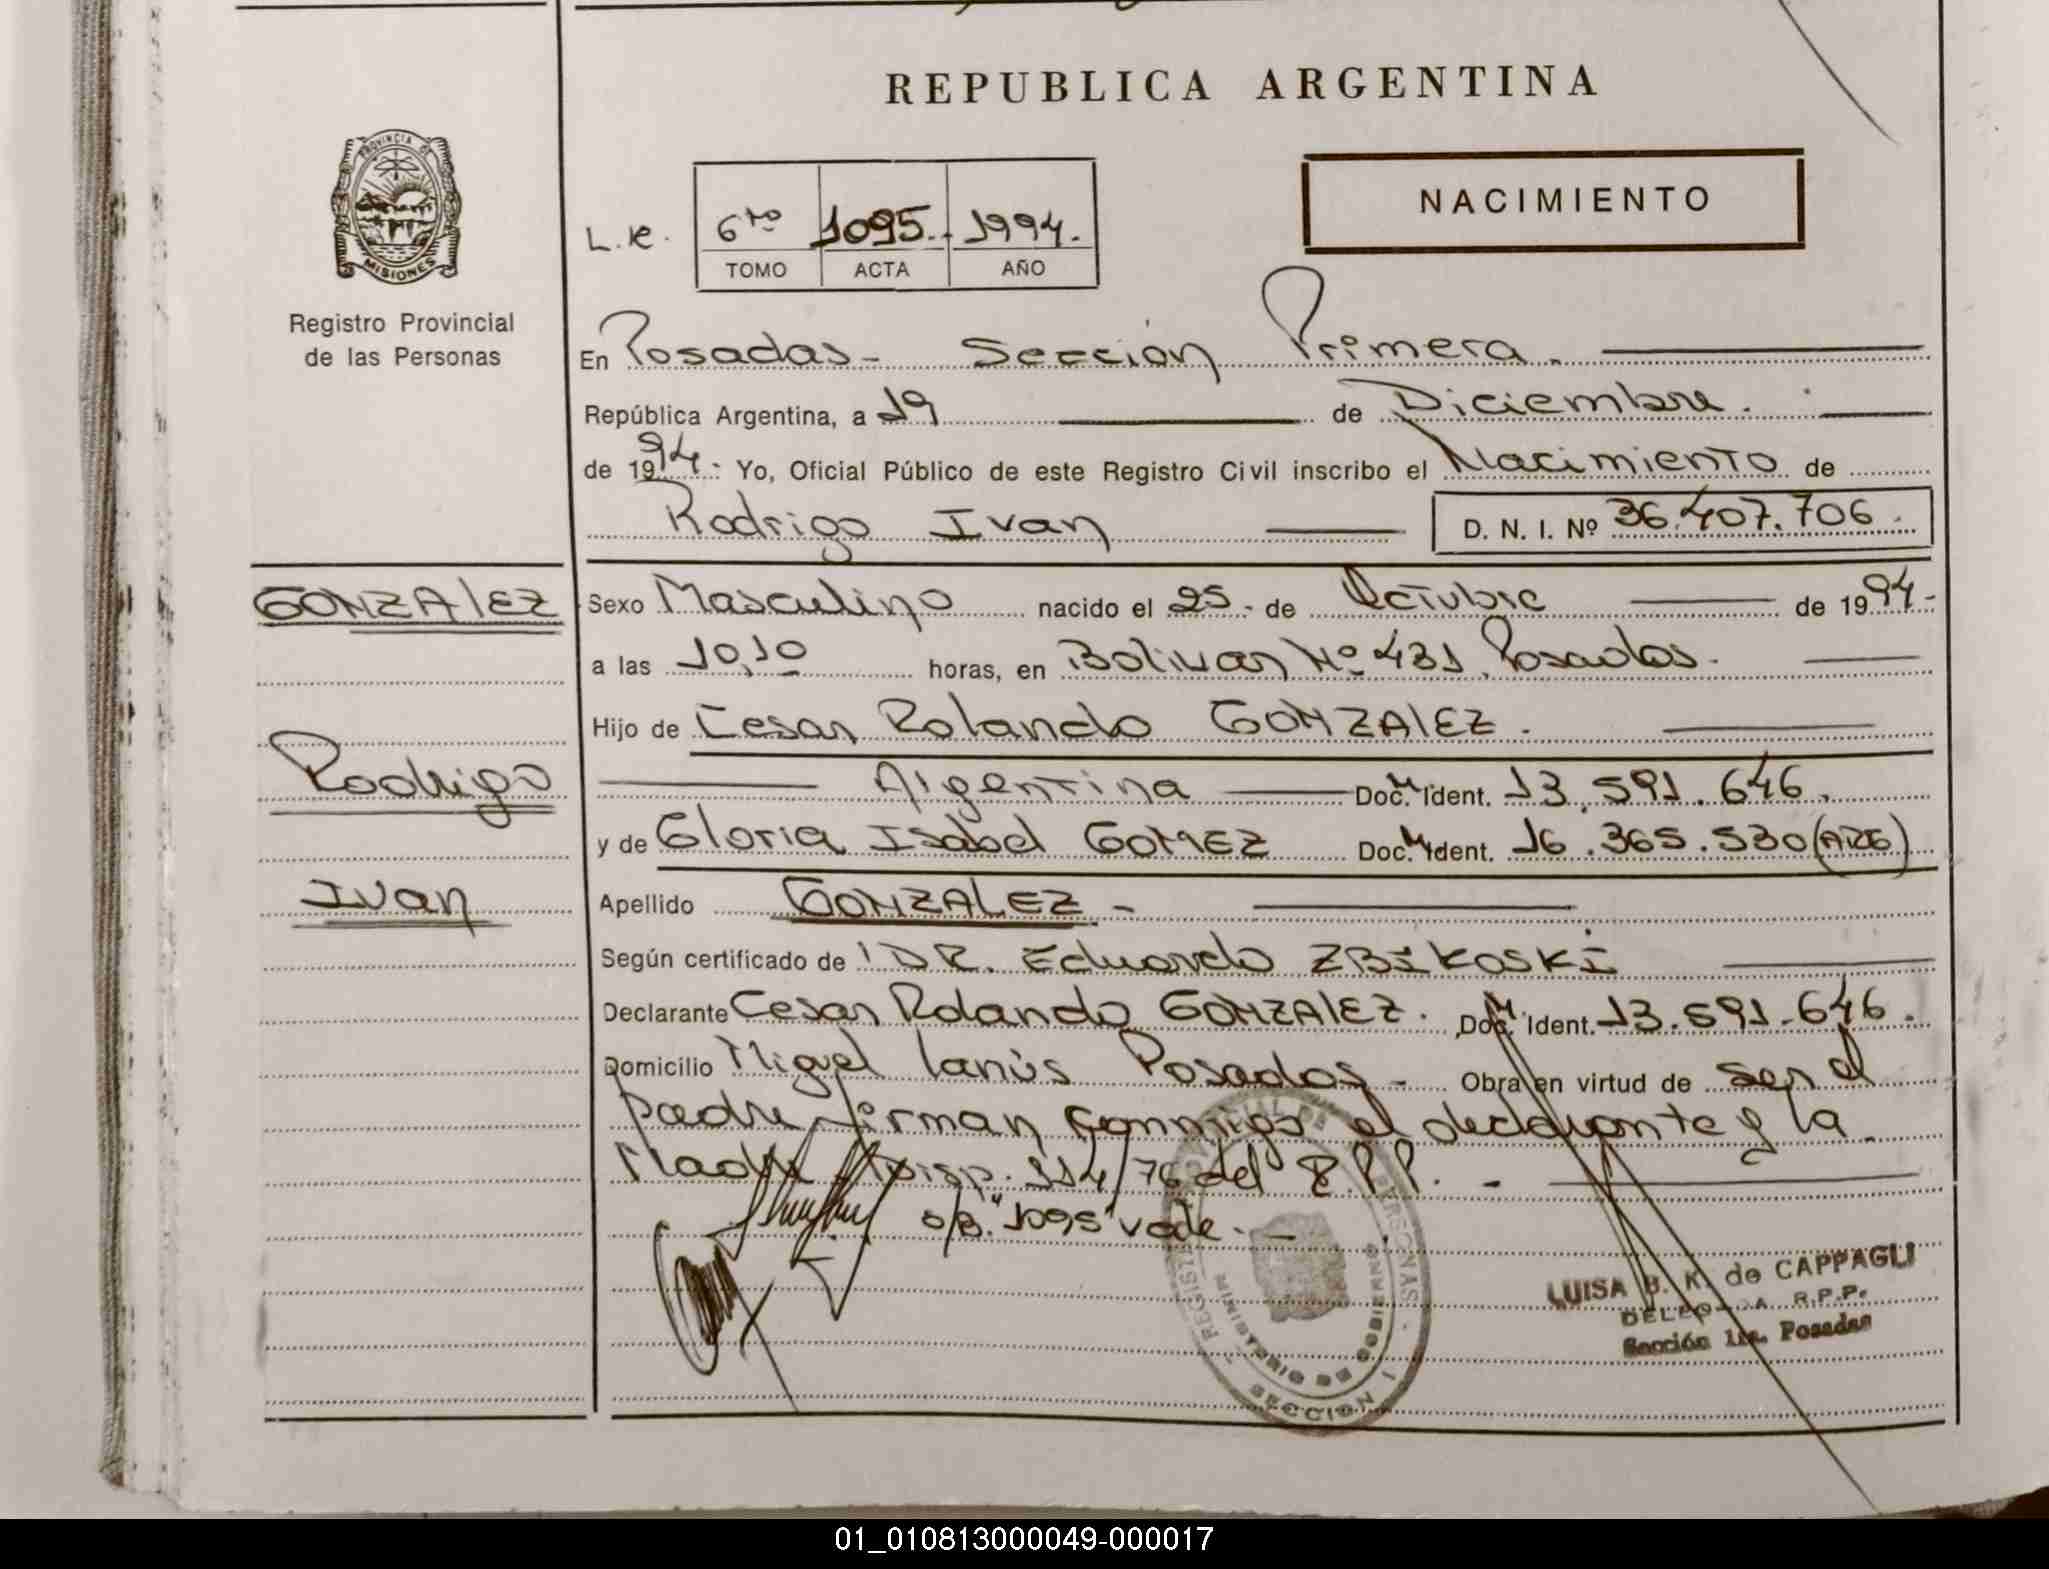 REPUBLICA ARGENTINA
PROVINCIA DE
MISIONES
Registro Provincial
de las Personas
NACIMIENTO
L.R. 6to 1095. 1994.
TOMO ACTA AÑO
En Posadas - Sección Primera.
República Argentina, a 19 de Diciembre.
de 1994.- Yo, Oficial Público de este Registro Civil inscribo el Nacimiento de
Rodrigo Ivan D. N. I. Nº 36.407.706.
GONZALEZ
Rodrigo
Ivan
Sexo Masculino nacido el 25.- de Octubre de 1994-
a las 10,10 horas, en Bolivar Nº 431 Posadas.
Hijo de Cesar Rolando GONZALEZ.
Argentina Doc. M Ident. 13.591.646.
y de Gloria Isabel GOMEZ Doc. M Ident. 16.365.530 (ARG)
Apellido GONZALEZ -
Según certificado de DR. Eduardo ZBIKOSKI
Declarante Cesar Rolando GONZALEZ. Doc. M Ident. 13.591.646.
Domicilio Miguel Lanús Posadas - Obra en virtud de ser el
padre firman conmigo el declarante y la
Madre Disp. 114/76 del R.P.P. -
s/B. "1095" vale. -
REGISTRO PROVINCIAL DE PERSONAS
MINISTERIO DE GOBIERNO
SECCION 1
LUISA B. K. de CAPPAGLI
DELEGADA R.P.P.
Sección 1ra. Posadas
01_010813000049-000017